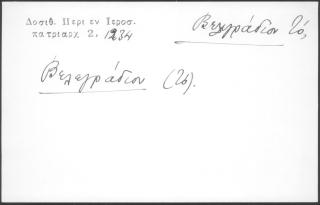 Δοσιθ. Περι εν Ιεροσ.
πατριαρχ 2, 1234
Βελγράδιον Τό,
Βελεγράδιον (Τό).